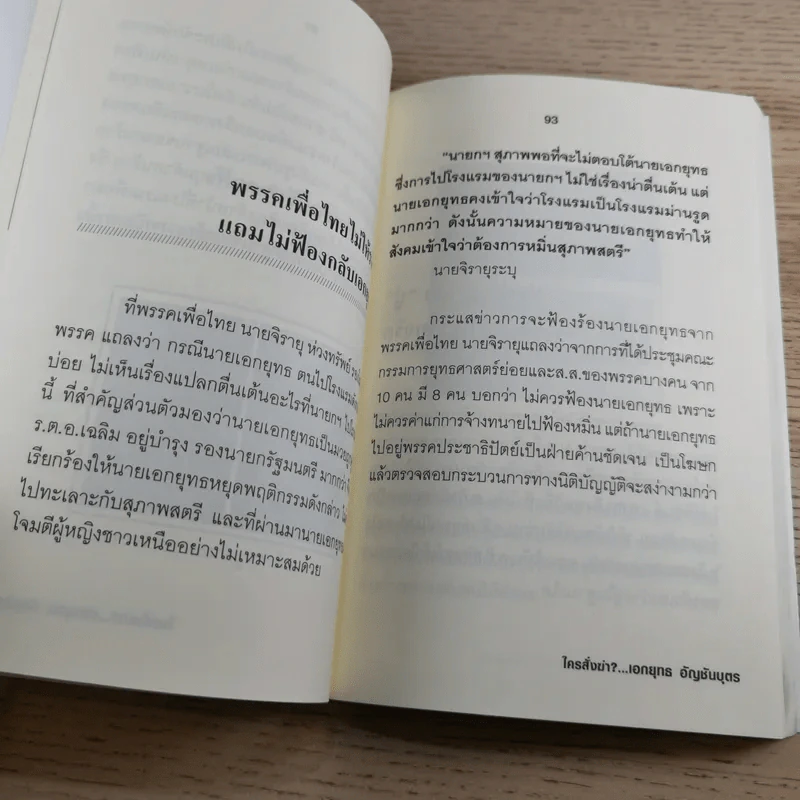 พรรคเพื่อไทยไม่ให้
แถมไม่ฟ้องกลับ
ที่พรรคเพื่อไทย นายจิรายุ ห่วงทรัพย์
พรรค แถลงว่า กรณีนายเอกยุทธ ตนไปโรงแรม
บ่อย ไม่เห็นเรื่องแปลกตื่นเต้นอะไรที่นายกฯ
นี้ ที่สำคัญส่วนตัวมองว่านายเอกยุทธเป็น
ร.ต.อ.เฉลิม อยู่บำรุง รองนายกรัฐมนตรี มากกว่า
เรียกร้องให้นายเอกยุทธหยุดพฤติกรรมดังกล่าว
ไปทะเลาะกับสุภาพสตรี และที่ผ่านมานายเอกยุทธ
โจมตีผู้หญิงชาวเหนืออย่างไม่เหมาะสมด้วย
93
"นายกฯ สุภาพพอที่จะไม่ตอบโต้นายเอกยุทธ
ซึ่งการไปโรงแรมของนายกฯ ไม่ใช่เรื่องน่าตื่นเต้น แต่
นายเอกยุทธคงเข้าใจว่าโรงแรมเป็นโรงแรมม่านรูด
มากกว่า ดังนั้นความหมายของนายเอกยุทธทำให้
สังคมเข้าใจว่าต้องการหมิ่นสุภาพสตรี"
นายจิรายุระบุ
กระแสข่าวการจะฟ้องร้องนายเอกยุทธจาก
พรรคเพื่อไทย นายจิรายุแถลงว่าจากการที่ได้ประชุมคณะ
กรรมการยุทธศาสตร์ย่อยและส.ส.ของพรรคบางคน จาก
10 คน มี 8 คน บอกว่า ไม่ควรฟ้องนายเอกยุทธ เพราะ
ไม่ควรค่าแก่การจ้างทนายไปฟ้องหมิ่น แต่ถ้านายเอกยุทธ
ไปอยู่พรรคประชาธิปัตย์เป็นฝ่ายค้านชัดเจน เป็นโฆษก
แล้วตรวจสอบกระบวนการทางนิติบัญญัติจะสง่างามกว่า
ใครสั่งฆ่า?...เอกยุทธ อัญชันบุตร